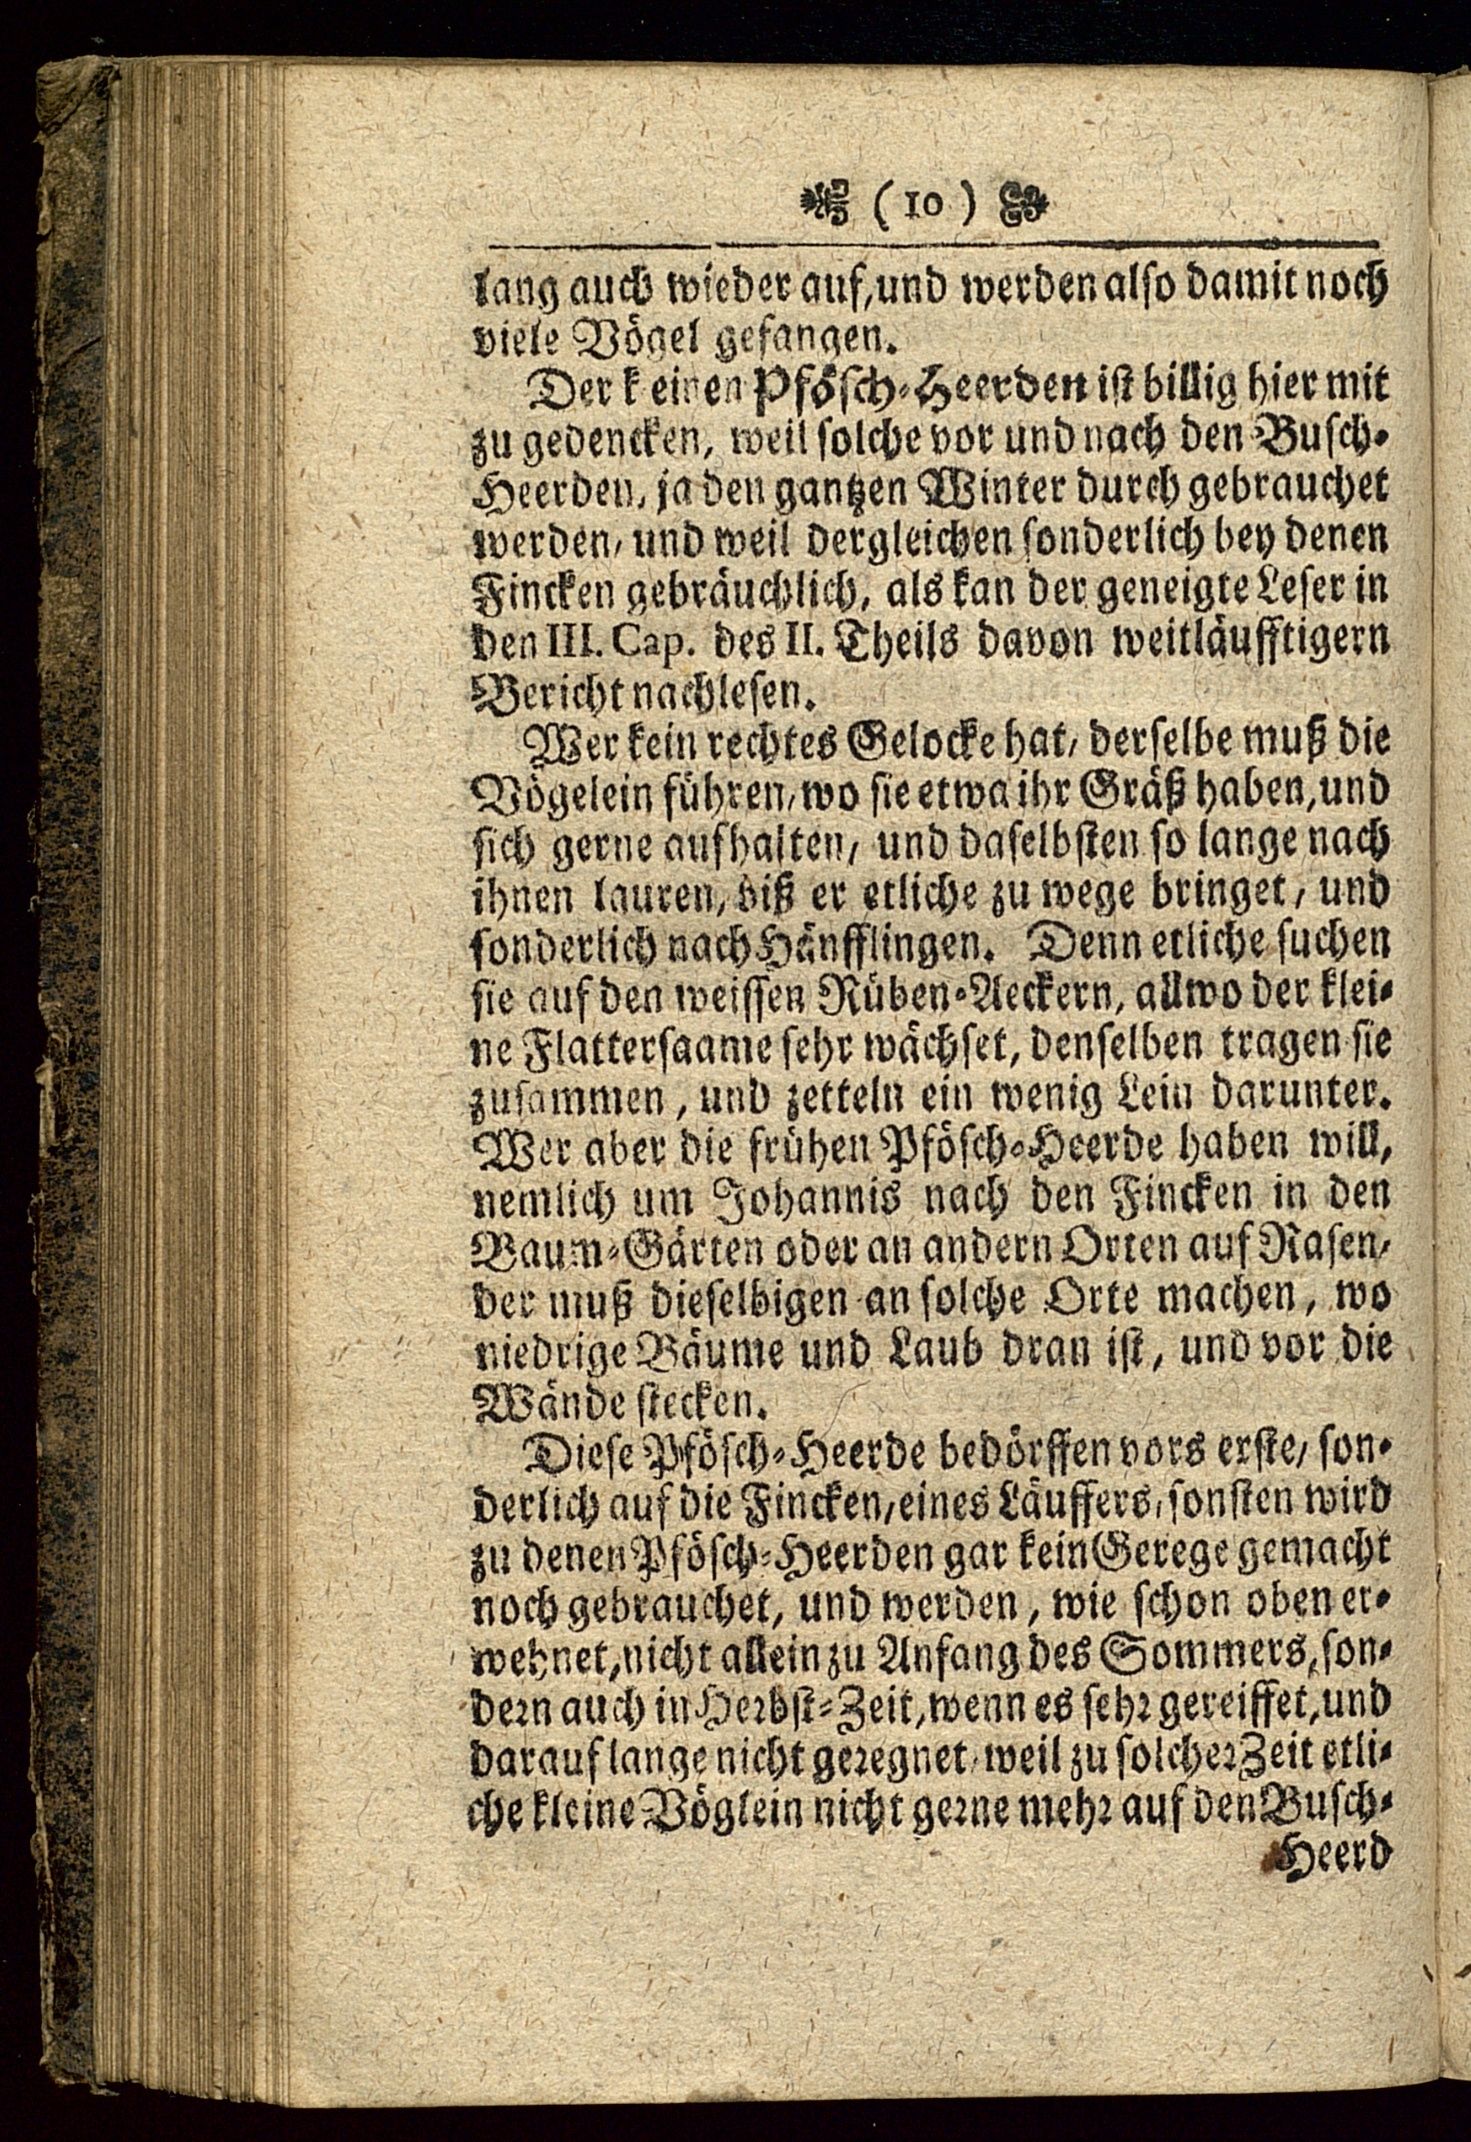 ( 10 )
lang auch wieder auf, und werden also damit noch
viele Vögel gefangen.
Der k einen Pfösch-Heerden ist billig hier mit
zu gedencken, weil solche vor und nach den Busch-
Heerden, ja den gantzen Winter durch gebrauchet
werden, und weil dergleichen sonderlich bey denen
Fincken gebräuchlich, als kan der geneigte Leser in
den III. Cap. des II. Theils davon weitläufftigern
Bericht nachlesen.
Wer kein rechtes Gelocke hat, derselbe muß die
Vögelein führen, wo sie etwa ihr Gräß haben, und
sich gerne aufhalten, und daselbsten so lange nach
ihnen lauren, biß er etliche zu wege bringet, und
sonderlich nach Hänfflingen. Denn etliche suchen
sie auf den weissen Rüben-Aeckern, allwo der klei-
ne Flattersaame sehr wächset, denselben tragen sie
zusammen, und zetteln ein wenig Lein darunter.
Wer aber die frühen Pfösch-Heerde haben will,
nemlich um Johannis nach den Fincken in den
Baum-Gärten oder an andern Orten auf Rasen,
der muß dieselbigen an solche Orte machen, wo
niedrige Bäume und Laub dran ist, und vor die
Wände stecken.
Diese Pfösch-Heerde bedörffen vors erste, son-
derlich auf die Fincken, eines Läuffers, sonsten wird
zu denen Pfösch-Heerden gar kein Gerege gemacht
noch gebrauchet, und werden, wie schon oben er-
wehnet, nicht allein zu Anfang des Sommers, son-
dern auch in Herbst-Zeit, wenn es sehr gereiffet, und
darauf lange nicht geregnet, weil zu solcher Zeit etli-
che kleine Vöglein nicht gerne mehr auf den Busch-
Heerd